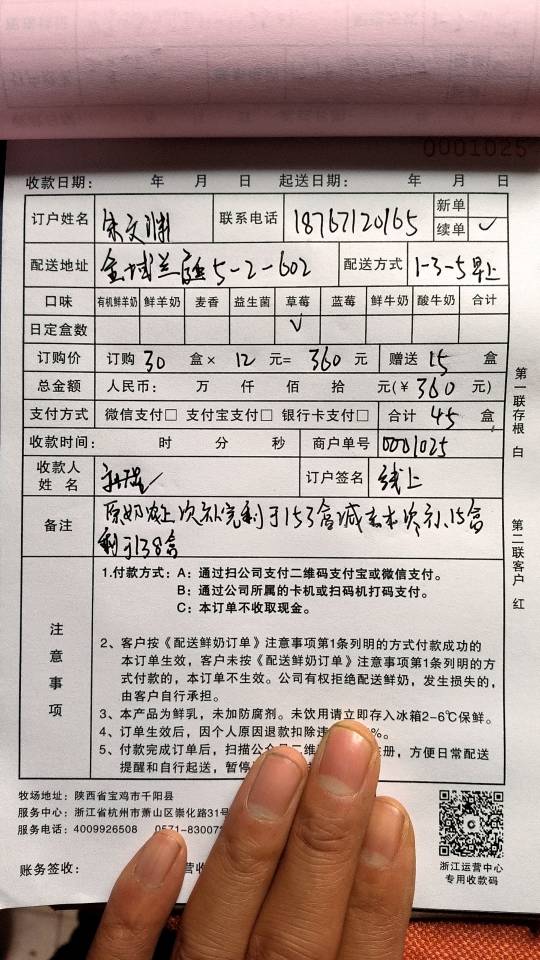 0001025
收款日期： 年 月 日 起送日期： 年 月 日
订户姓名 宋文渊 联系电话 18767120165 新单
续单 ✓
配送地址 金城兰庭5-2-602 配送方式 1-3-5早上
口味 有机鲜羊奶 鲜羊奶 麦香 益生菌 草莓 蓝莓 鲜牛奶 酸牛奶 合计
日定盒数 ✓
订购价 订购 30 盒× 12 元= 360 元 赠送 15 盒
总金额 人民币： 万 仟 佰 拾 元(¥ 360 元)
支付方式 微信支付□ 支付宝支付□ 银行卡支付□ 合计 45 盒
收款时间： 时 分 秒 商户单号 0001025
收款人姓名 订户签名 线上
备注 原奶卡上次补完剩于153盒减去本次补15盒
剩于138盒
第一联存根 白
第二联客户 红
注意事项
1.付款方式：A：通过扫公司支付二维码支付宝或微信支付。
B：通过公司所属的卡机或扫码机打码支付。
C：本订单不收取现金。
2、客户按《配送鲜奶订单》注意事项第1条列明的方式付款成功的
本订单生效，客户未按《配送鲜奶订单》注意事项第1条列明的方
式付款的，本订单不生效。公司有权拒绝配送鲜奶，发生损失的，
由客户自行承担。
3、本产品为鲜乳，未加防腐剂。未饮用请立即存入冰箱2-6℃保鲜。
4、订单生效后，因个人原因退款扣除违 %。
5、付款完成订单后，扫描公众号二维 册，方便日常配送
提醒和自行起送，暂停
牧场地址：陕西省宝鸡市千阳县
服务中心：浙江省杭州市萧山区崇化路31号
服务电话：4009926508 0571-83007
浙江运营中心
专用收款码
账务签收： 营收